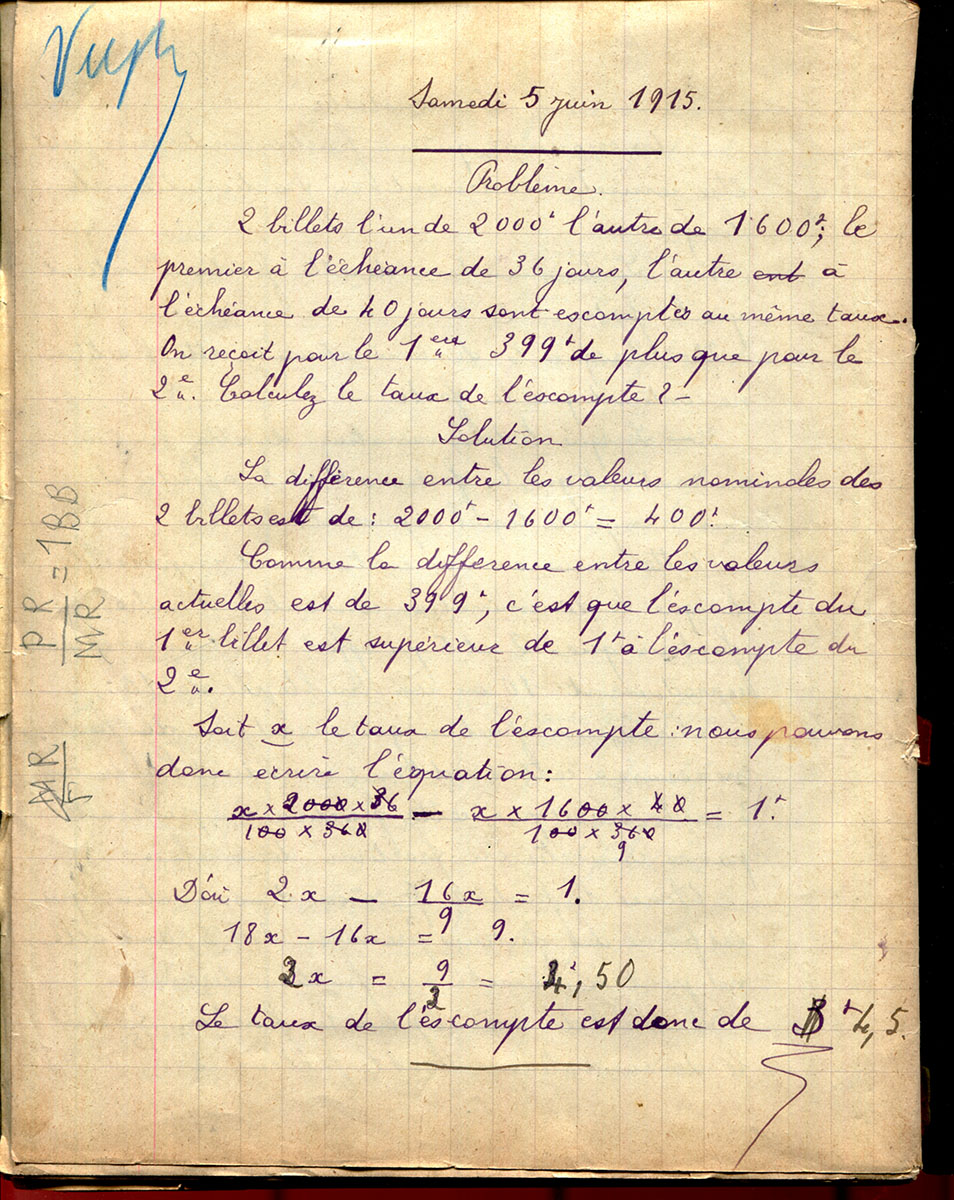 Samedi 5 juin 1915.
Problème.
2 billets l'un de 2000f l'autre de 1600f; le
premier à l'échéance de 36 jours, l'autre est à
l'échéance de 40 jours sont escomptés au même taux.
On reçoit pour le 1er 399f de plus que pour le
2e. Calculez le taux de l'éscompte? -
Solution
La différence entre les valeurs nominales des
2 billets est de : 2000f - 1600f = 400f.
Comme la différence entre les valeurs
actuelles est de 399f, c'est que l'éscompte du
1er billet est supérieur de 1f à l'éscompte du
2e.
Soit x le taux de l'éscompte : nous pouvons
donc écrire l'équation :
x × 2000 × 36 / 100 × 360 - x × 1600 × 40 / 100 × 360 = 1f.
9
D'où 2x - 16x / 9 = 1.
18x - 16x = 9.
2x = 9 / 2 = 4f,50
Le taux de l'éscompte est donc de 4,5.
PR / MR = 1BB
MR